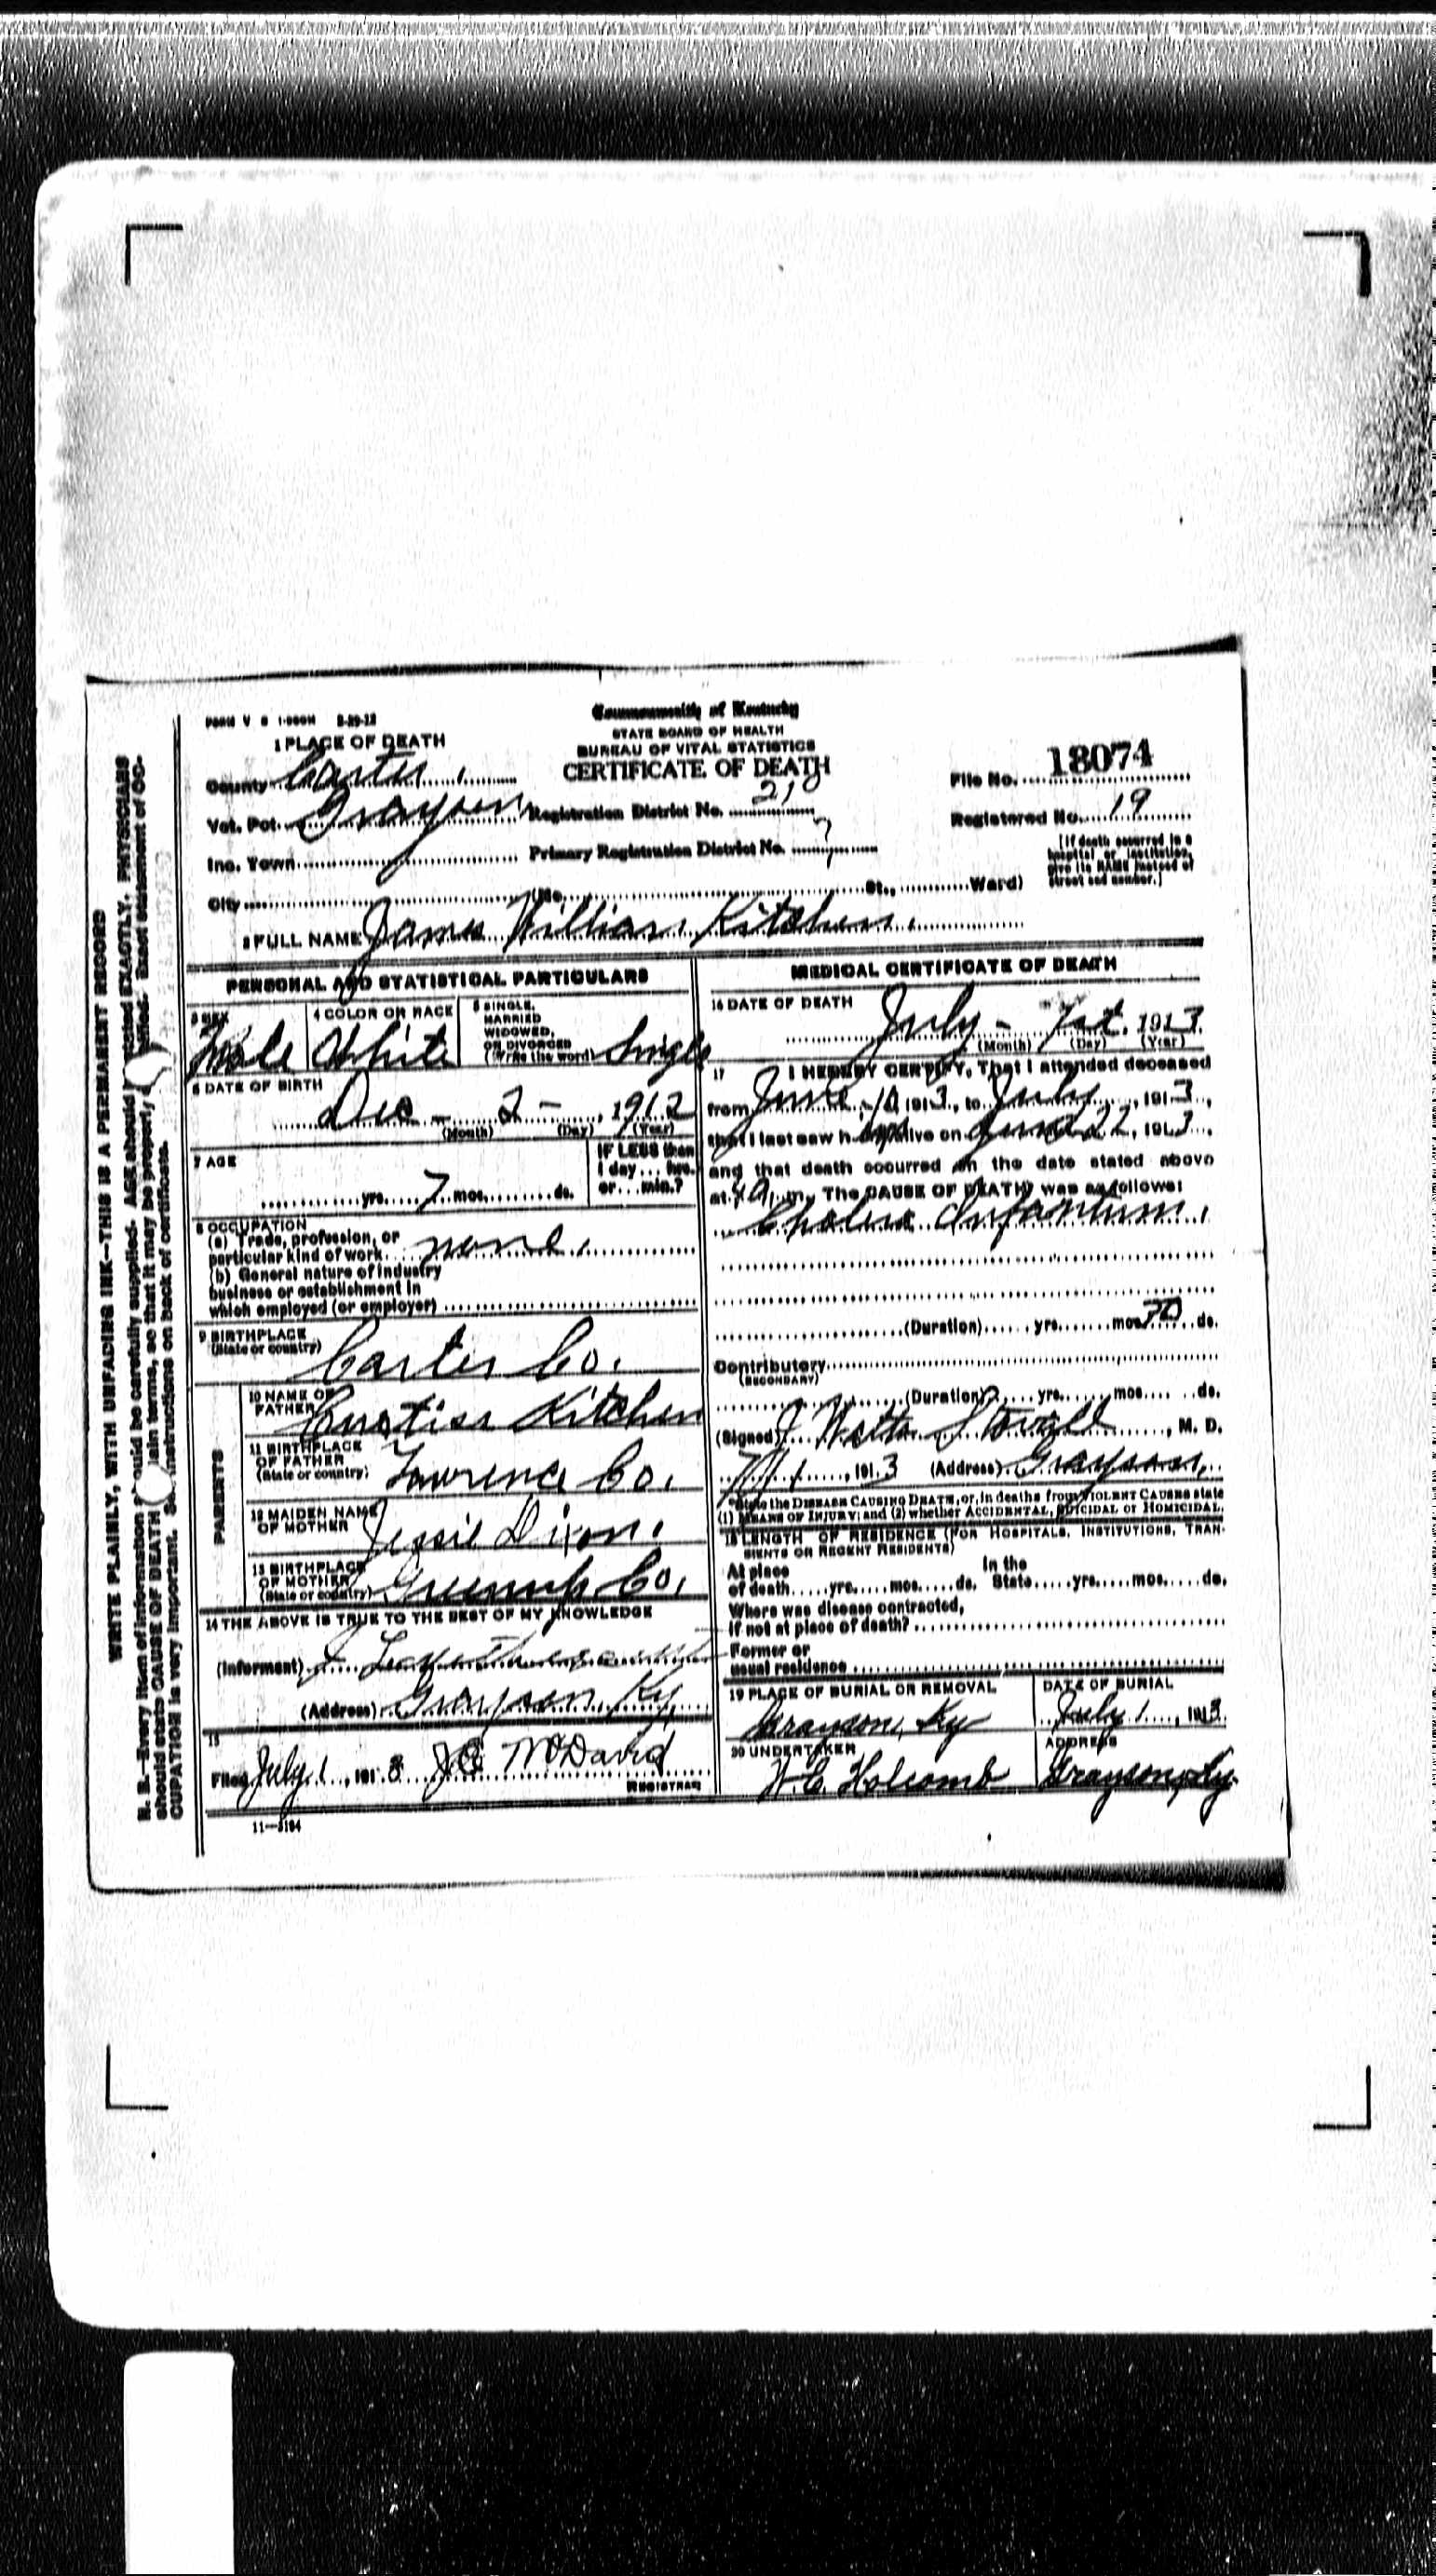 FORM V S 1-500M 5-29-12
Commonwealth of Kentucky
STATE BOARD OF HEALTH
BUREAU OF VITAL STATISTICS
CERTIFICATE OF DEATH
1 PLACE OF DEATH
County Carter
Vot. Pct. Grayson Registration District No. 210
Inc. Town Primary Registration District No. 7
City (No. St., Ward)
File No. 18074
Registered No. 19
[If death occurred in a hospital or institution, give its NAME instead of street and number.]
2 FULL NAME James William Kitchen
PERSONAL AND STATISTICAL PARTICULARS
3 SEX Male
4 COLOR OR RACE White
5 SINGLE, MARRIED WIDOWED, OR DIVORCED (Write the word) Single
6 DATE OF BIRTH
Dec - 2 - , 1912
(Month) (Day) (Year)
7 AGE
yrs. 7 mos. ds.
IF LESS than 1 day... hrs. or... min.?
8 OCCUPATION
(a) Trade, profession, or
particular kind of work none
(b) General nature of industry
business or establishment in
which employed (or employer)
9 BIRTHPLACE
(State or country) Carter Co.
PARENTS
10 NAME OF FATHER Curtiss Kitchen
11 BIRTHPLACE OF FATHER (State or country) Lawrence Co.
12 MAIDEN NAME OF MOTHER Jessie Dixon
13 BIRTHPLACE OF MOTHER (State or country) Greenup Co.
14 THE ABOVE IS TRUE TO THE BEST OF MY KNOWLEDGE
(Informant)
(Address) Grayson, Ky.
15
Filed July 1, 1913 McDavid
REGISTRAR
11—3194
MEDICAL CERTIFICATE OF DEATH
16 DATE OF DEATH
July - 1st. 1913
(Month) (Day) (Year)
17 I HEREBY CERTIFY, That I attended deceased
from June 10, 1913, to July, 1913,
that I last saw h alive on June 22, 1913,
and that death occurred on the date stated above
at m. The CAUSE OF DEATH was as follows:
Cholera Infantum
(Duration) yrs. mos. ds.
Contributory
(SECONDARY)
(Duration) yrs. mos. ds.
(Signed) J Watts Stovall, M. D.
7/1, 1913 (Address) Grayson
*State the DISEASE CAUSING DEATH, or, in deaths from VIOLENT CAUSES state
(1) MEANS OF INJURY; and (2) whether ACCIDENTAL, SUICIDAL or HOMICIDAL.
18 LENGTH OF RESIDENCE (FOR HOSPITALS, INSTITUTIONS, TRANSIENTS OR RECENT RESIDENTS)
At place of death yrs. mos. ds. In the State yrs. mos. ds.
Where was disease contracted,
if not at place of death?
Former or
usual residence
19 PLACE OF BURIAL OR REMOVAL
Grayson, Ky
DATE OF BURIAL
July 1, 1913
20 UNDERTAKER
H. E. Holcomb
ADDRESS
Grayson, Ky.
WRITE PLAINLY, WITH UNFADING INK—THIS IS A PERMANENT RECORD
N. B.—Every item of information should be carefully supplied. AGE should be stated EXACTLY. PHYSICIANS
should state CAUSE OF DEATH in plain terms, so that it may be properly classified. Exact statement of OC-
CUPATION is very important. See instructions on back of certificate.